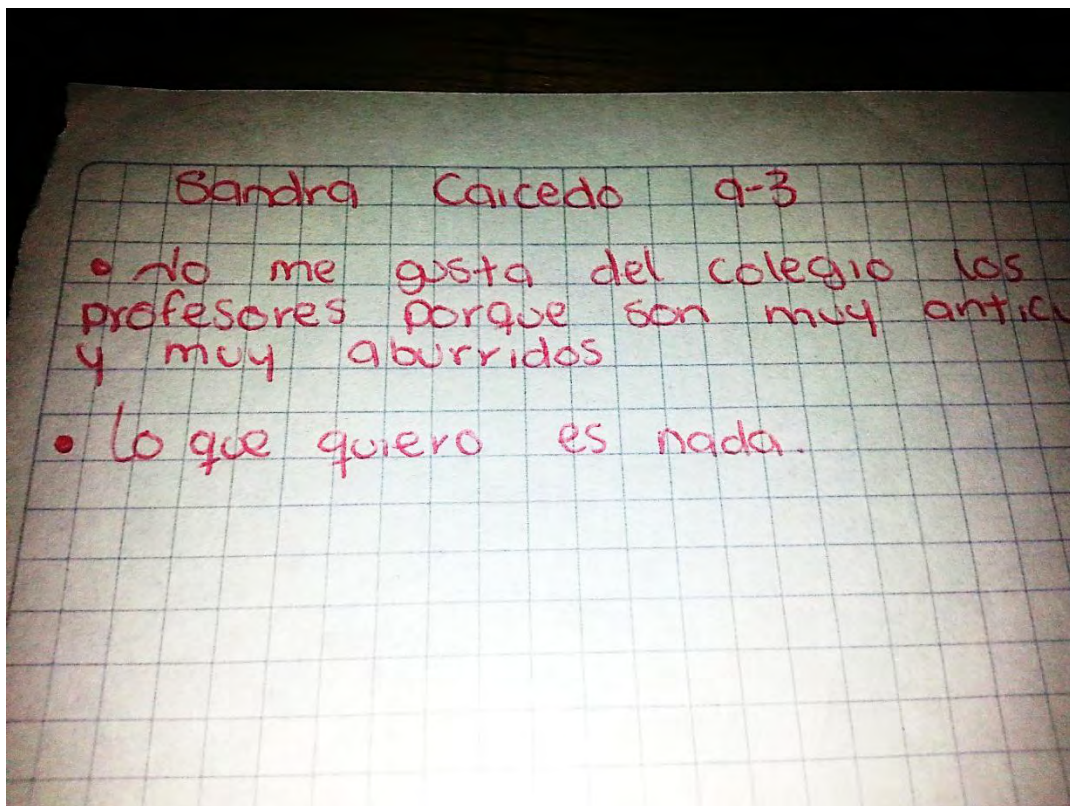 Sandra Caicedo 9-3
• No me gusta del colegio los
profesores porque son muy
y muy aburridos
• Lo que quiero es nada.